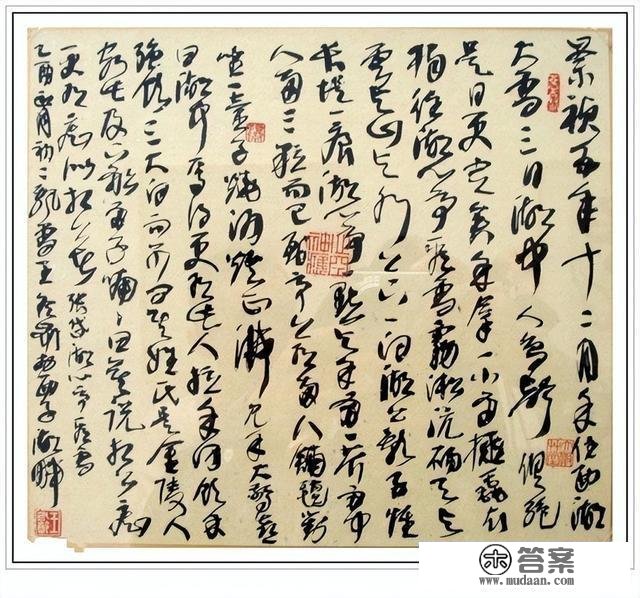 崇祯五年十二月余住西湖
大雪三日湖中人鸟声俱绝
是日更定矣余拿一小舟拥毳衣
独往湖心亭看雪雾淞沆砀天与
云与山与水上下一白湖上影子惟
长堤一痕湖心亭一点与余舟一芥舟中
人两三粒而已到亭上有两人铺毡对
坐一童子烧酒炉正沸见余大喜
曰湖中焉得更有此人拉余同饮余
强饮三大白而别问其姓氏是金陵人
客此及下船舟子喃喃曰莫说相公痴
更有痴似相公者 张岱湖心亭看雪
乙酉正月初二飘雪王于西子湖畔
答案
www.mudaan.com